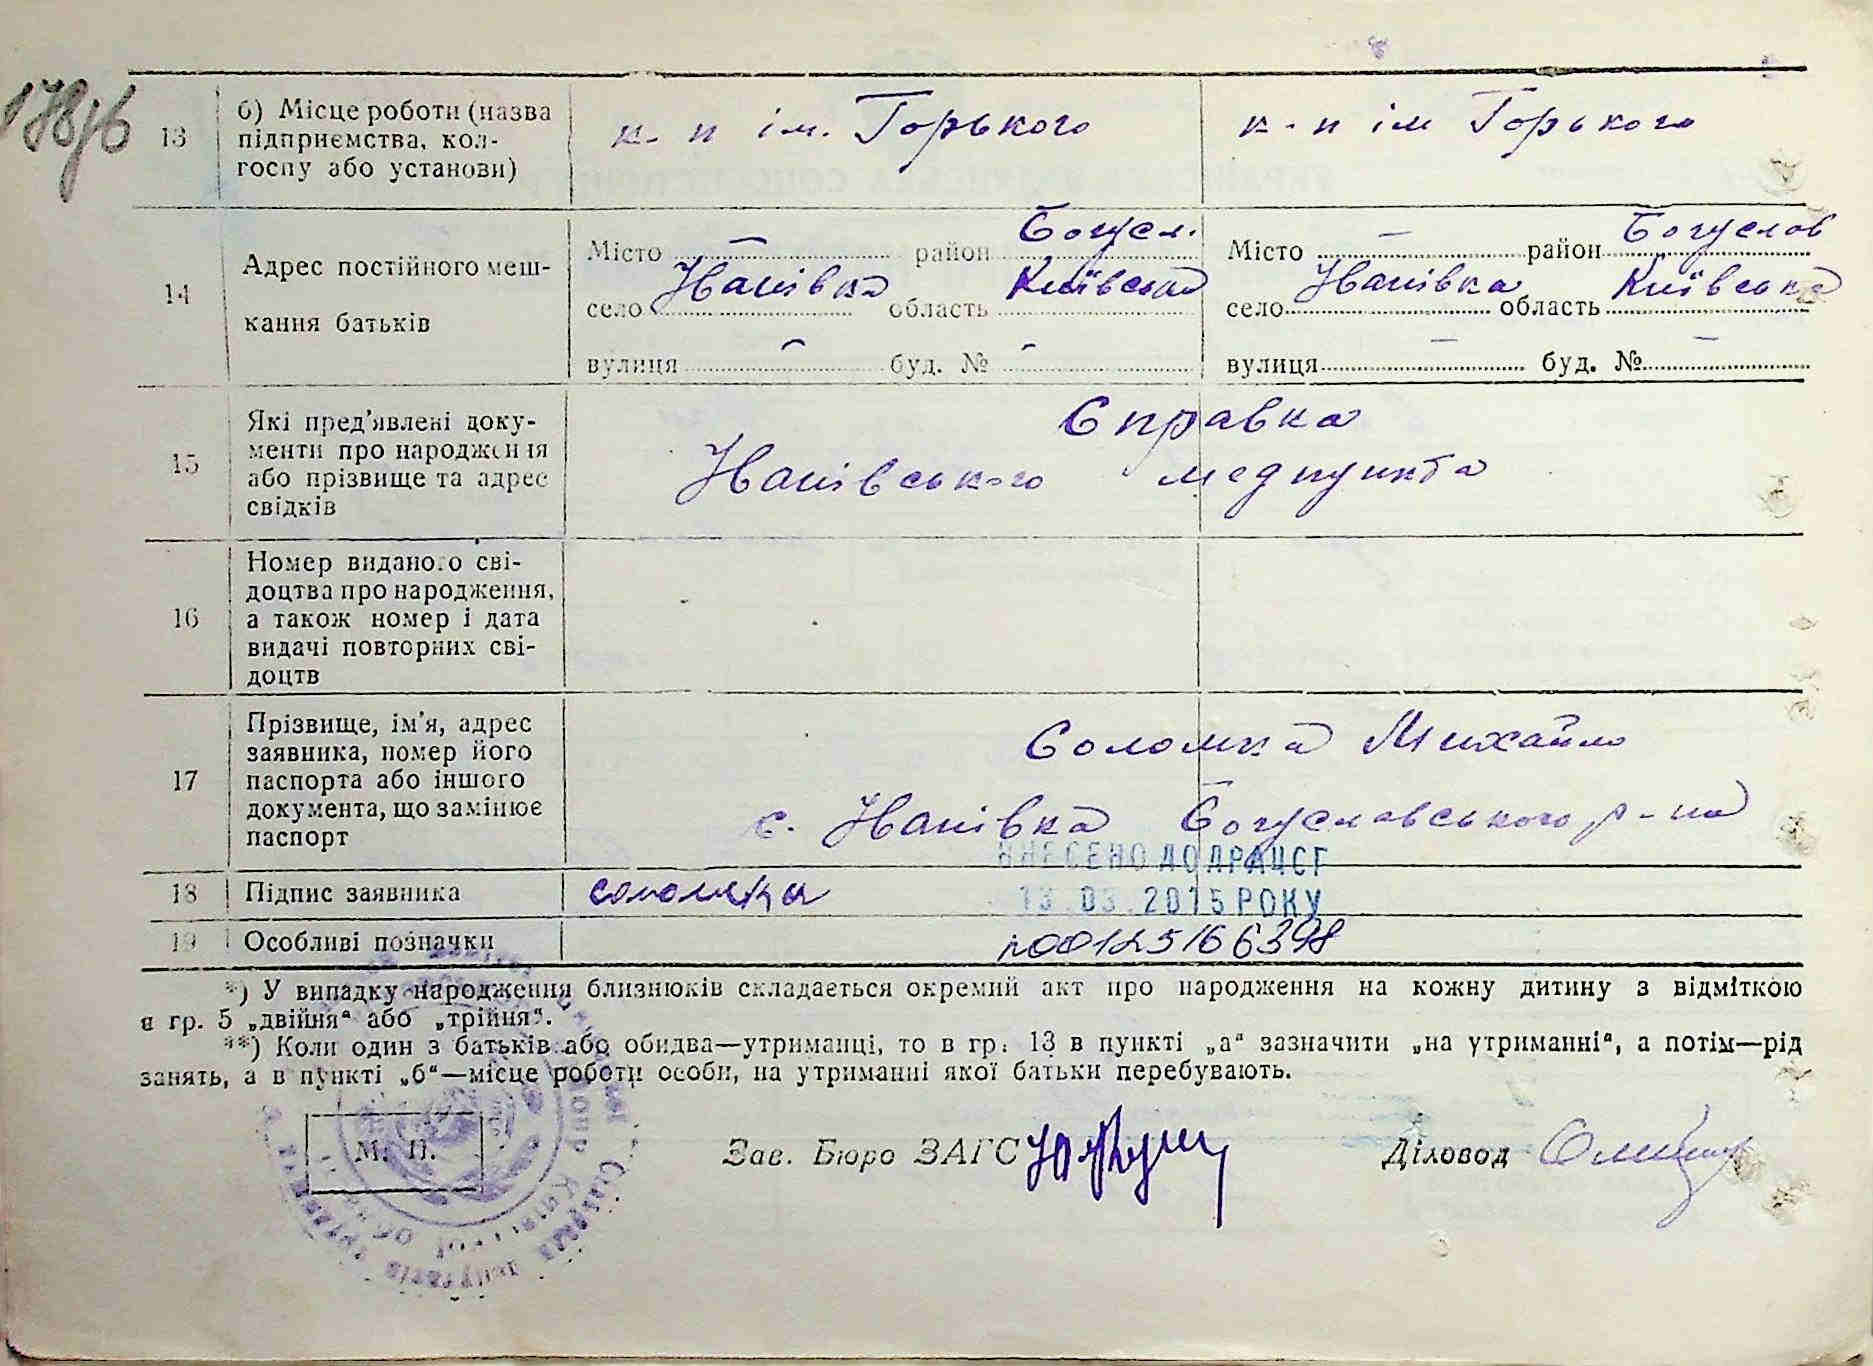 178/б
13
б) Місце роботи (назва
підприємства, кол-
госпу або установи)
к-п ім. Горького
к-п ім Горького
14
Адрес постійного меш-
кання батьків
Місто — район Богусл.
село Іванівка область Київська
вулиця — буд. № —
Місто — район Богуслав
село Іванівка область Київська
вулиця — буд. № —
15
Які пред'явлені доку-
менти про народження
або прізвище та адрес
свідків
Справка
Іванівського медпункта
16
Номер виданого сві-
доцтва про народження,
а також номер і дата
видачі повторних сві-
доцтв
17
Прізвище, ім'я, адрес
заявника, номер його
паспорта або іншого
документа, що замінює
паспорт
Соломка Михайло
с. Іванівка Богуславського р-на
ВНЕСЕНО ДО ДРАЦСГ
13.03.2015 РОКУ
18
Підпис заявника
соломка
19
Особливі позначки
№00125166398
*) У випадку народження близнюків складається окремий акт про народження на кожну дитину з відміткою
в гр. 5 „двійня“ або „трійня“.
**) Коли один з батьків або обидва—утриманці, то в гр. 13 в пункті „а“ зазначити „на утриманні“, а потім—рід
занять, а в пункті „б“—місце роботи особи, на утриманні якої батьки перебувають.
М. П.
Зав. Бюро ЗАГС
Діловод